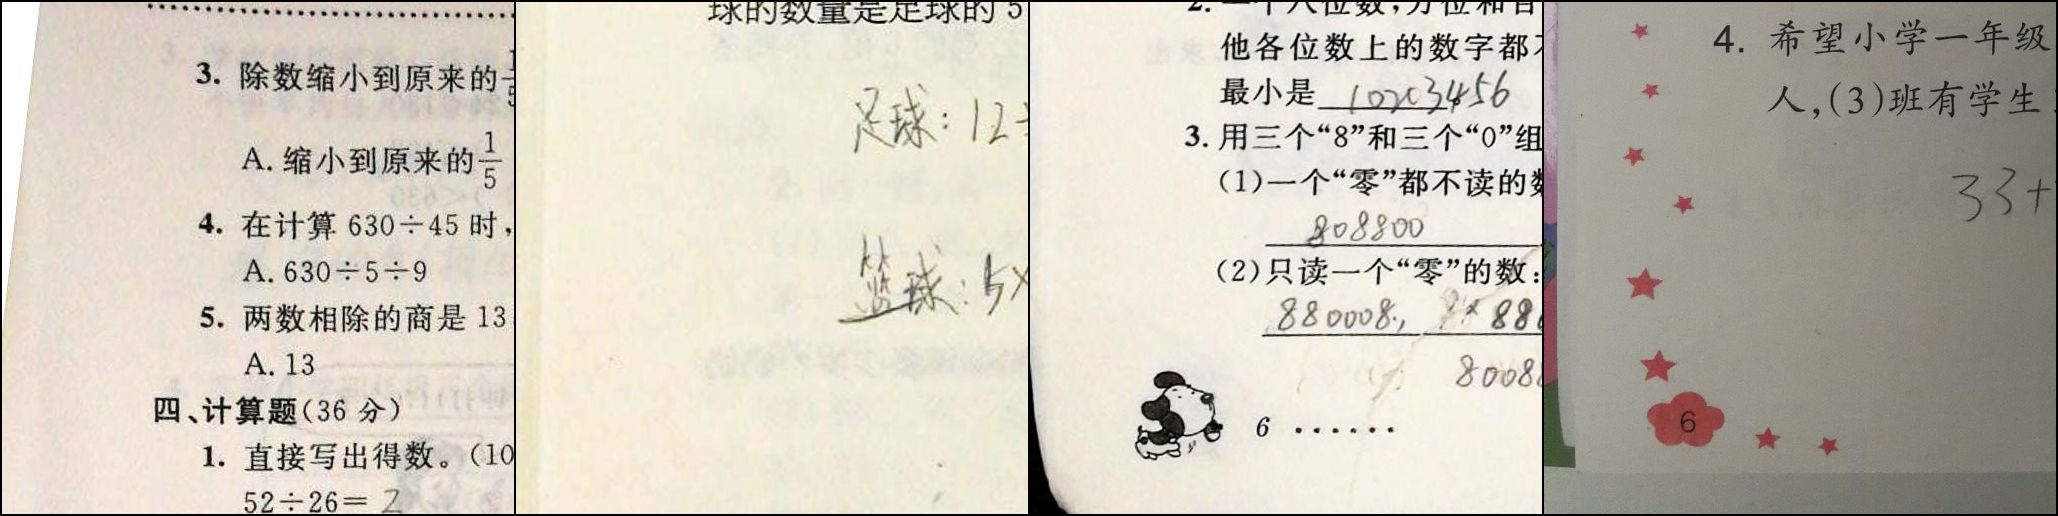 3. 除数缩小到原来的
A. 缩小到原来的1/5
4. 在计算 630÷45 时,
A. 630÷5÷9
5. 两数相除的商是 13
A. 13
四、计算题(36 分)
1. 直接写出得数。(10
52÷26= 2
球的数量是足球的 5
足球: 12÷
篮球: 5×
2. 一个八位数,
他各位数上的数字都不
最小是 10203456
3. 用三个“8”和三个“0”组
(1)一个“零”都不读的数
808800
(2)只读一个“零”的数:
880008, 880
8008
6 ······
4. 希望小学一年级
人,(3)班有学生
33+
6